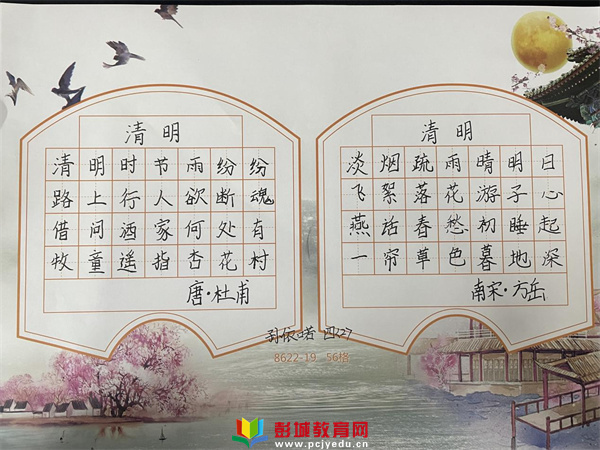 清明
清明时节雨纷纷
路上行人欲断魂
借问酒家何处有
牧童遥指杏花村
唐·杜甫
清明
淡烟疏雨晴明日
飞絮落花游子心
燕话春愁初睡起
一帘草色暮地深
南宋·方岳
8622-19 56格
彭城教育网
www.pcjyedu.cn